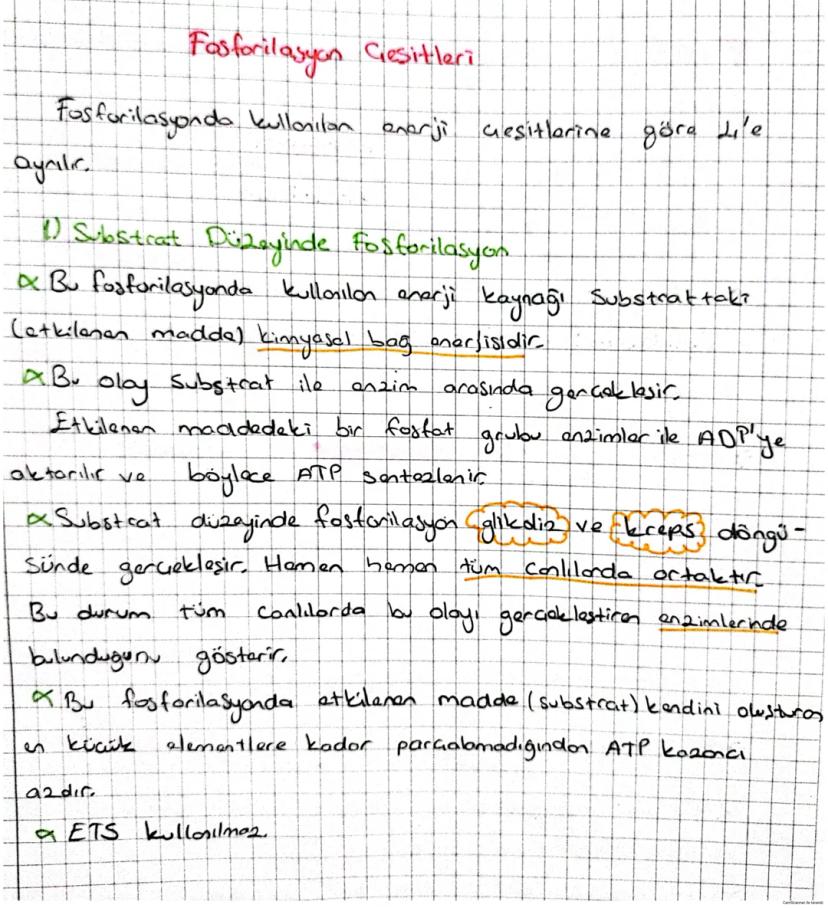 Fosforilasyon Çeşitleri
Fosforilasyonda kullanılan enerji çeşitlerine göre 4'e
ayrılır.
1) Substrat Düzeyinde Fosforilasyon
α Bu fosforilasyonda kullanılan enerji kaynağı substrattaki
(etkilenen madde) kimyasal bağ enerjisidir.
α Bu olay substrat ile enzim arasında gerçekleşir.
Etkilenen maddedeki bir fosfat grubu enzimler ile ADP'ye
aktarılır ve böylece ATP sentezlenir.
α Substrat düzeyinde fosforilasyon glikoliz ve kreps döngü-
sünde gerçekleşir. Hemen hemen tüm canlılarda ortaktır.
Bu durum tüm canlılarda bu olayı gerçekleştiren enzimlerinde
bulunduğunu gösterir.
α Bu fosforilasyonda etkilenen madde (substrat) kendini oluşturan
en küçük elementlere kadar parçalanmadığından ATP kazancı
azdır.
α ETS kullanılmaz.
CamScanner ile tarandı